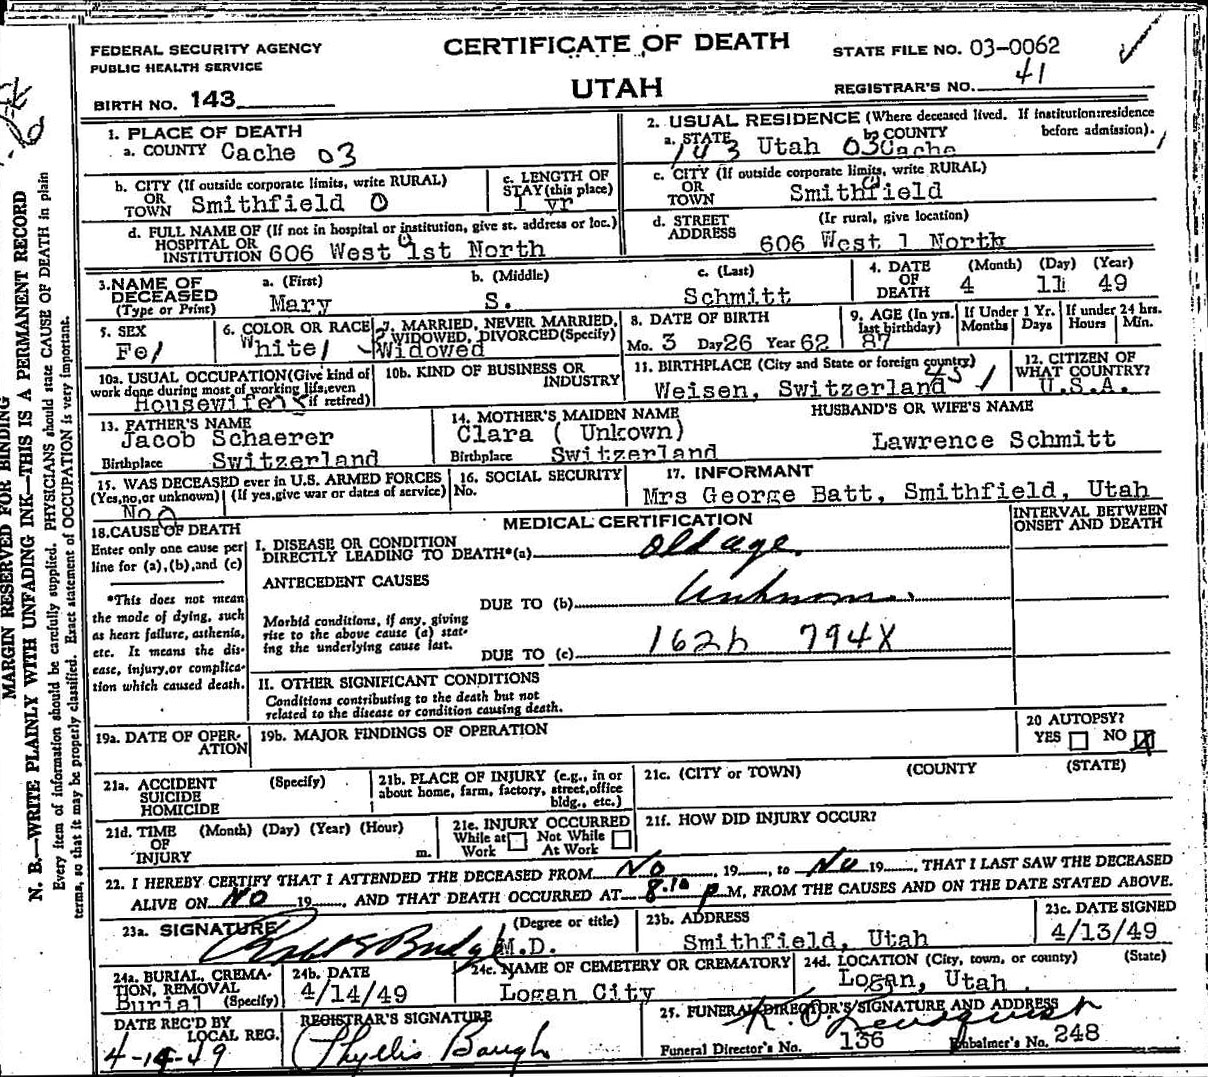 CERTIFICATE OF DEATH
UTAH
FEDERAL SECURITY AGENCY
PUBLIC HEALTH SERVICE
BIRTH NO. 143
STATE FILE NO. 03-0062
REGISTRAR'S NO. 41
MARGIN RESERVED FOR BINDING
N. B.—WRITE PLAINLY WITH UNFADING INK—THIS IS A PERMANENT RECORD
Every item of information should be carefully supplied. PHYSICIANS should state CAUSE OF DEATH in plain
terms, so that it may be properly classified. Exact statement of OCCUPATION is very important.
1. PLACE OF DEATH
a. COUNTY Cache 03
2. USUAL RESIDENCE (Where deceased lived. If institution:residence
before admission).
a. STATE 143 Utah 03 b. COUNTY Cache
b. CITY (If outside corporate limits, write RURAL)
OR
TOWN Smithfield 0
c. LENGTH OF
STAY (this place)
1 yr
c. CITY (If outside corporate limits, write RURAL)
OR
TOWN Smithfield
d. FULL NAME OF (If not in hospital or institution, give st. address or loc.)
HOSPITAL OR
INSTITUTION 606 West 1st North
d. STREET
ADDRESS
(If rural, give location)
606 West 1 North
3. NAME OF
DECEASED
(Type or Print)
a. (First)
Mary
b. (Middle)
S.
c. (Last)
Schmitt
4. DATE
OF
DEATH
(Month) (Day) (Year)
4 11 49
5. SEX
Fe/
6. COLOR OR RACE
White/
7. MARRIED, NEVER MARRIED,
WIDOWED, DIVORCED (Specify)
Widowed
8. DATE OF BIRTH
Mo. 3 Day 26 Year 62
9. AGE (In yrs.
last birthday)
87
If Under 1 Yr.
Months Days
If under 24 hrs.
Hours Min.
10a. USUAL OCCUPATION (Give kind of
work done during most of working life, even
if retired)
Housewife
10b. KIND OF BUSINESS OR
INDUSTRY
11. BIRTHPLACE (City and State or foreign country)
Weisen, Switzerland
12. CITIZEN OF
WHAT COUNTRY?
U.S.A.
13. FATHER'S NAME
Jacob Schaerer
Birthplace Switzerland
14. MOTHER'S MAIDEN NAME
Clara ( Unkown)
Birthplace Switzerland
HUSBAND'S OR WIFE'S NAME
Lawrence Schmitt
15. WAS DECEASED ever in U.S. ARMED FORCES
(Yes, no, or unknown) (If yes, give war or dates of service)
No
16. SOCIAL SECURITY
No.
17. INFORMANT
Mrs George Batt, Smithfield, Utah
18. CAUSE OF DEATH
Enter only one cause per
line for (a), (b), and (c)
*This does not mean
the mode of dying, such
as heart failure, asthenia,
etc. It means the dis-
ease, injury, or complica-
tion which caused death.
MEDICAL CERTIFICATION
INTERVAL BETWEEN
ONSET AND DEATH
I. DISEASE OR CONDITION
DIRECTLY LEADING TO DEATH*(a) Old age
ANTECEDENT CAUSES
DUE TO (b) Unknown
Morbid conditions, if any, giving
rise to the above cause (a) stat-
ing the underlying cause last.
DUE TO (c) 162h 794X
II. OTHER SIGNIFICANT CONDITIONS
Conditions contributing to the death but not
related to the disease or condition causing death.
19a. DATE OF OPER-
ATION
19b. MAJOR FINDINGS OF OPERATION
20 AUTOPSY?
YES NO X
21a. ACCIDENT
SUICIDE
HOMICIDE
(Specify)
21b. PLACE OF INJURY (e.g., in or
about home, farm, factory, street, office
bldg., etc.)
21c. (CITY or TOWN) (COUNTY (STATE)
21d. TIME
OF
INJURY
(Month) (Day) (Year) (Hour)
m.
21e. INJURY OCCURRED
While at Work
Not While At Work
21f. HOW DID INJURY OCCUR?
22. I HEREBY CERTIFY THAT I ATTENDED THE DECEASED FROM No, 19....., to No 19....., THAT I LAST SAW THE DECEASED
ALIVE ON No 19....., AND THAT DEATH OCCURRED AT 8.10 p M, FROM THE CAUSES AND ON THE DATE STATED ABOVE.
23a. SIGNATURE
(Degree or title)
M.D.
23b. ADDRESS
Smithfield, Utah
23c. DATE SIGNED
4/13/49
24a. BURIAL, CREMA-
TION, REMOVAL
Burial (Specify)
24b. DATE
4/14/49
24c. NAME OF CEMETERY OR CREMATORY
Logan City
24d. LOCATION (City, town, or county) (State)
Logan, Utah
DATE REC'D BY
LOCAL REG.
4-14-49
REGISTRAR'S SIGNATURE
Phyllis Baugh
25. FUNERAL DIRECTOR'S SIGNATURE AND ADDRESS
Funeral Director's No. 136
Embalmer's No. 248